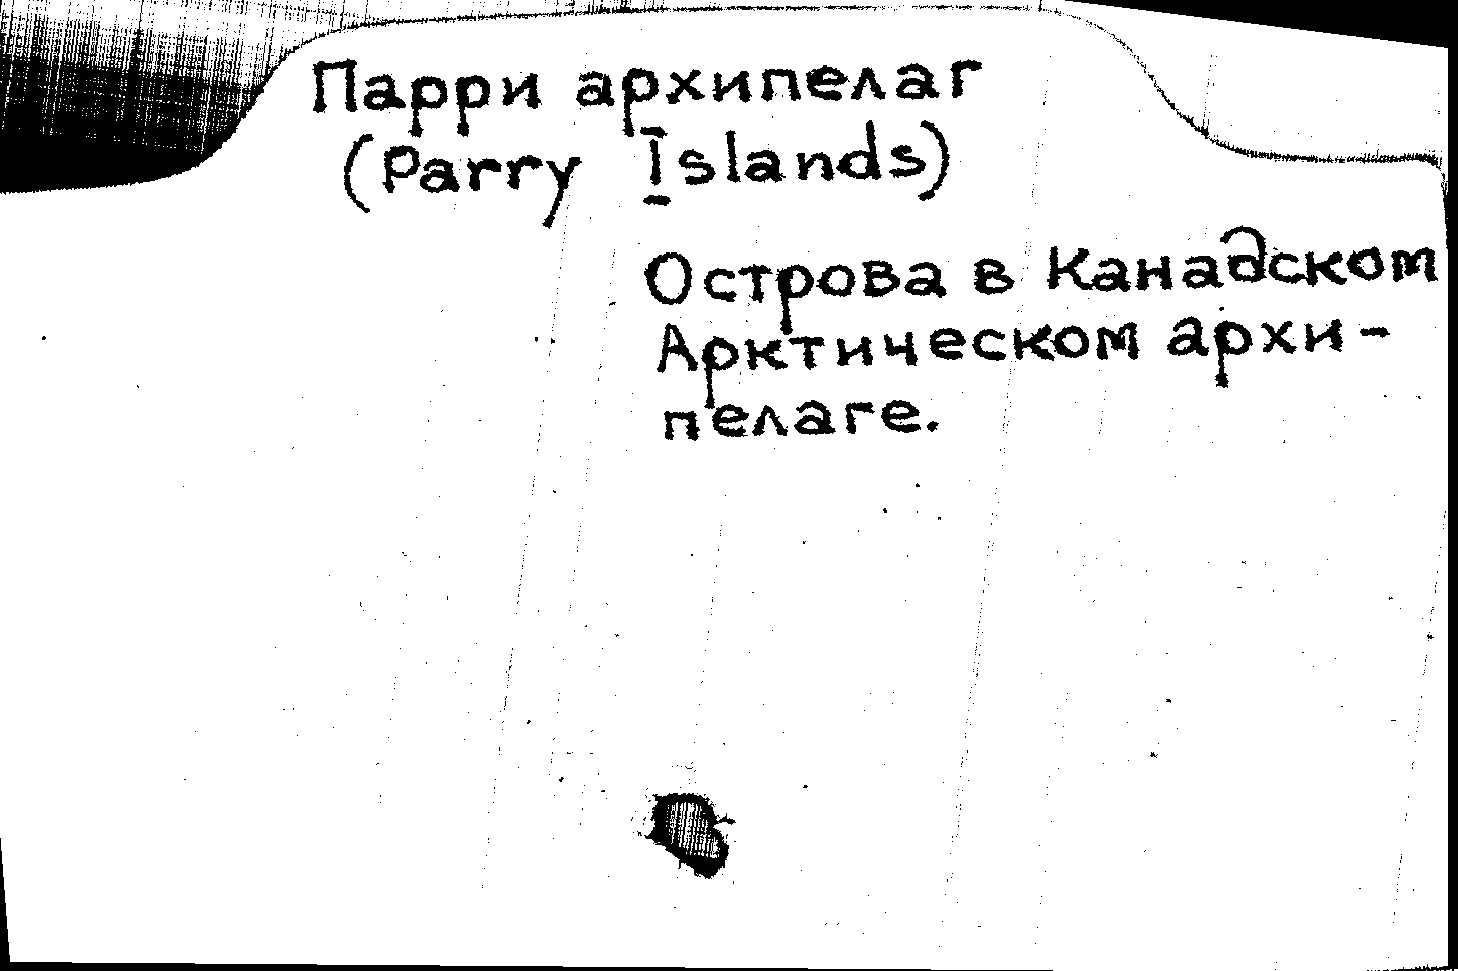 Парри архипелаг
(Parry Islands)
Острова в Канадском
Арктическом архи-
пелаге.